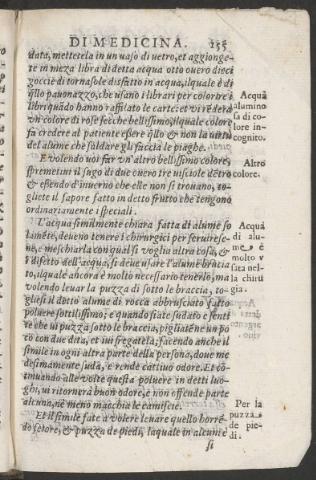 DI MEDICINA. 255
data, mettetela in un uaso di uetro, et aggionge-
te in meza libra di detta acqua otto ouero dieci
goccie di tornasole disfatto in acqua, ilquale è di
q̃llo pauonazzo, che usano i librari per colorire i
libri quãdo hanno raffilato le carte: et vi rẽderà
vn colore di rose secche bellissimo, ilquale colore
fa credere al patiente essere q̃llo & non la uirtù
del alume che saldare gli faccia le piaghe.
Acqua
alumino
sa di co-
lore in-
cognito.
E volendo uoi far vn altro bellissimo colore,
spremetiui il sugo di due ouero tre uisciole dẽtro
& essendo d'inuerno che elle non si trouano, to-
gliete il sapore fatto in detto frutto che tengono
ordinariamente i speciali.
Altro
colore.
L'acqua similmente chiara fatta di alume so
lamẽte, deueno tenere i chirurgici per seruirese-
ne, e meschiarla con qual si voglia altra cosa, &
ĩ difetto dell'acqua, si deue usare l'alume brucia
to, ilquale ancora è molto necessario tenerlo, ma
volendo leuar la puzza di sotto le braccia, to-
gliesi il detto alume di rocca abbrusciato fatto
poluere sottilissimo; e quando siate sudato e senti
te che ui puzza sotto le braccia, pigliatẽne un po
co con due dita, et iui fregatela; facendo anche il
simile in ogni altra parte della persona, doue me
desimamente suda, e rende cattiuo odore. Et cõ-
tinuando alle volte questa poluere in detti luo-
ghi, ui ritornerà buon odore, e non offende parte
alcuna, nè meno macchia le camiscie.
Acqua
di alu-
me, è
molto v
sata nel-
la chirur
gia.
Et il simile fate a volere leuare quello horrẽ-
do fetore, & puzza de piedi, laquale in alcune
si
Per la
puzza
de pie-
di.